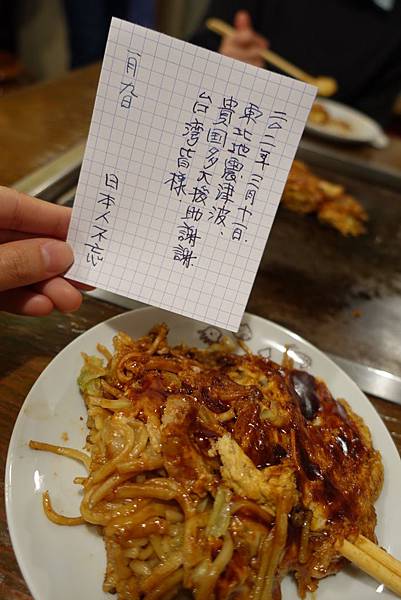 二〇一一年三月十一日、
東北地震津波、
貴国多大援助謝謝
台湾皆様
一月九日
日本人不忘